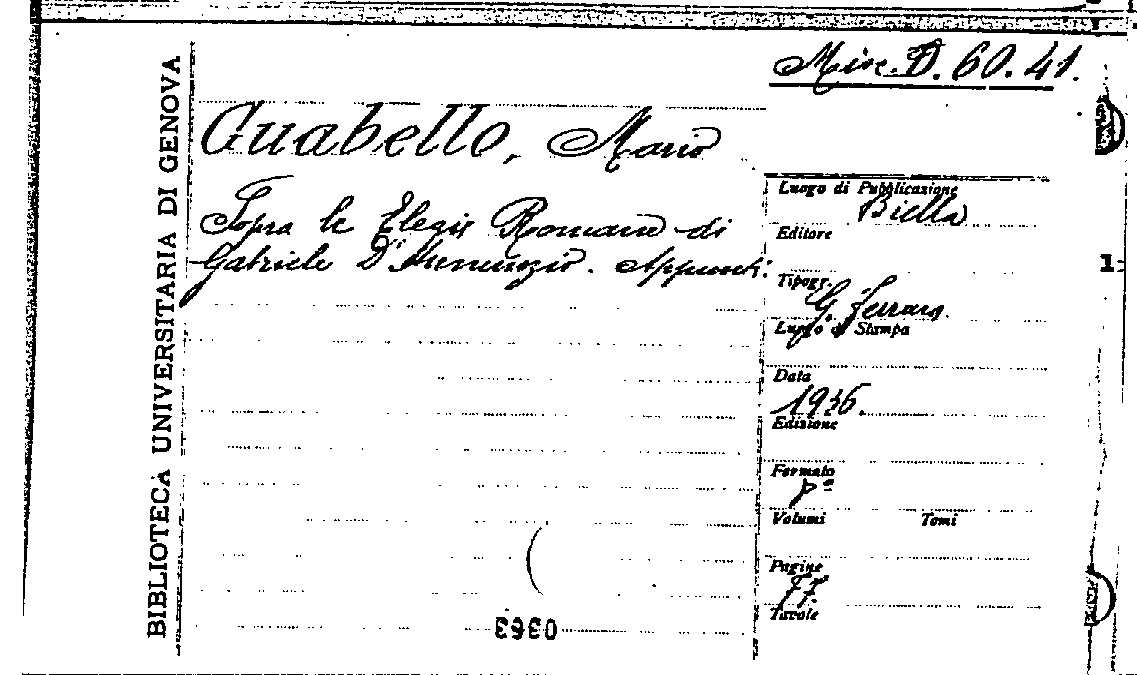 Misc. D. 60. 41.
BIBLIOTECA UNIVERSITARIA DI GENOVA
Guabello, Mario
Sopra le Elegie Romane di
Gabriele D'Annunzio. Appunti.
Luogo di Pubblicazione
Biella
Editore
Tipogr.
G. Ferraro
Luogo di Stampa
Data
1936.
Edizione
Formato
Volumi Tomi
Pagine
Tavole
0363